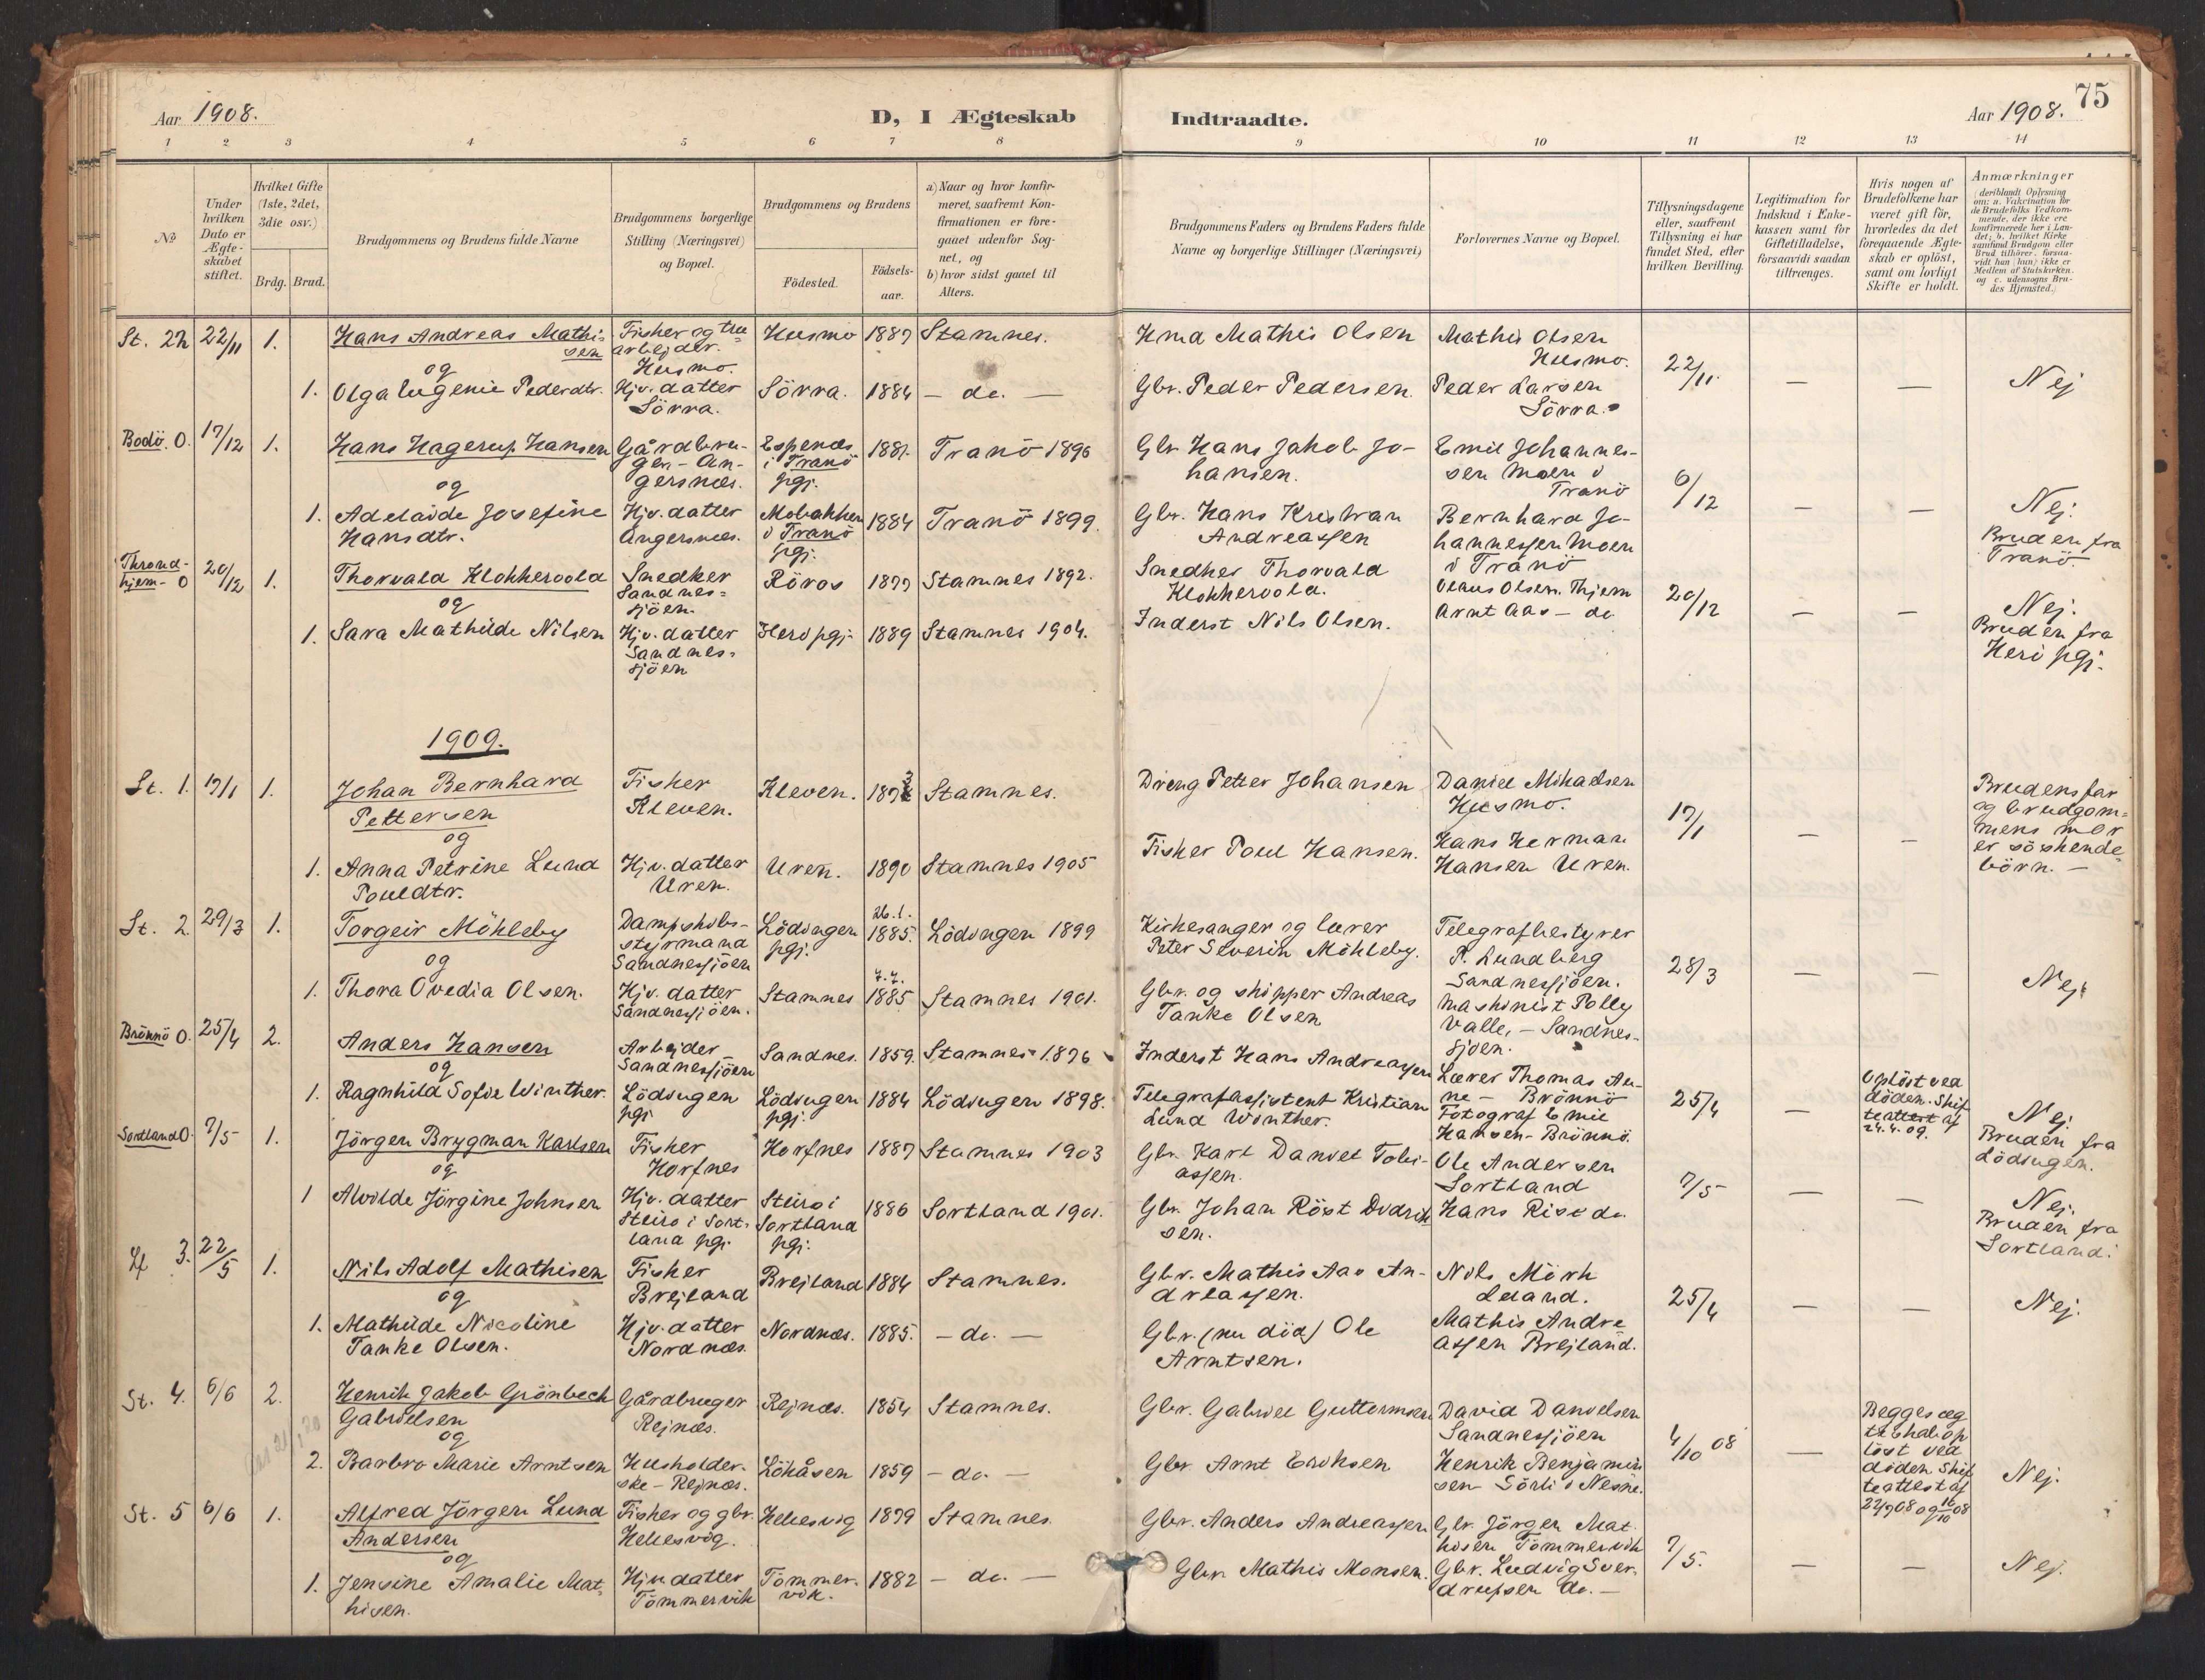 Aar 1908.
D, I Ægteskab
Indtraadte.
Aar 1908.
75
1 2 3 4 5 6 7 8 9 10 11 12 13 14
No
Under
hvilken
Dato er
Ægte-
skabet
stiftet.
Hvilket Gifte
(1ste, 2det,
3die osv.)
Brdg. Brud.
Brudgommens og Brudens fulde Navne
Brudgommens borgerlige
Stilling (Næringsvei)
og Bopæl.
Brudgommens og Brudens
Födested.
Födsels-
aar.
a) Naar og hvor konfir-
meret, saafremt Kon-
firmationen er fore-
gaaet udenfor Sog-
net, og
b) hvor sidst gaaet til
Alters.
Brudgommens Faders og Brudens Faders fulde
Navne og borgerlige Stillinger (Næringsvei)
Forlovernes Navne og Bopæl.
Tillysningsdagene
eller, saafremt
Tillysning ei har
fundet Sted, efter
hvilken Bevilling.
Legitimation for
Indskud i Enke-
kassen samt for
Giftetilladelse,
forsaavidt saadan
tiltrænges.
Hvis nogen af
Brudefolkene har
været gift før,
hvorledes da det
foregaaende Ægte-
skab er oplöst,
samt om lovligt
Skifte er holdt.
Anmærkninger
(deriblandt Oplysning
om: a. Vakcination for
de Brudefolks Vedkom-
mende, der ikke ere
konfirmerede her i Lan-
det; b. hvilket Kirke
samfund Brudgom eller
Brud tilhörer, forsaa-
vidt han (hun) ikke er
Medlem af Statskirken.
og c. udensogns Bru-
des Hjemsted.)
St. 22 22/11 1.
Hans Andreas Mathi-
sen
og
Fisker og træ-
arbejder.
Husmo.
Husmo 1887 Stamnes.
Hmd Mathis Olsen
Mathis Olsen
Husmo.
22/11.
— — Nej
1. Olga Eugenie Pederdtr.
Hjv. datter
Sörra.
Sörra. 1884 — do. —
Gbr. Peder Pedersen.
Peder Larsen
Sörra.
Bodö. O. 17/12 1.
Hans Hagerup Hansen
og
Gårdbru-
ger - An-
gersnes.
Espenæs
i Tranö
pgj.
1881. Tranö 1896
Gbr Hans Jakob Jo-
hansen.
Emil Johannes-
sen Moen i
Tranö
6/12
— — Nej.
Bruden fra
Tranö.
1. Adelaide Josefine
Hansdtr.
Hjv. datter
Angersnæs.
Mobakken
i Tranö
pgj.
1884 Tranö 1899.
Gbr. Hans Kristian
Andreassen
Bernhard Jo-
hannessen Moen
i Tranö
Thrond-
hjem - O 20/12 1.
Thorvald Klokkervold
og
Snedker
Sandnes-
sjöen.
Röros 1877 Stamnes 1892.
Snedker Thorvald
Klokkervold.
Olaus Olsen. Thjem
Arnt Aas - do
20/12
— — Nej.
Bruden fra
Herö pgj.
1. Sara Mathilde Nilsen
Hjv. datter
Sandnes-
sjöen
Herö pgj. 1889 Stamnes 1904.
Inderst Nils Olsen.
1909.
St. 1. 17/1 1.
Johan Bernhard
Pettersen
og
Fisker
Kleven.
Kleven. 1873 Stamnes.
Dreng Petter Johansen
Daniel Mikaelsen
Husmo.
17/1
— —
Brudens far
og brudgom-
mens mor
er söskende-
börn. —
1. Anna Petrine Lund
Pouldtr.
Hjv. datter
Uren.
Uren. 1890 Stamnes 1905
Fisker Poul Hansen.
Hans Herman
Hansen Uren.
St. 2. 29/3 1.
Torgeir Möhleby
og
Dampskibs-
styrmand
Sandnessjöen
Lödingen
pgj.
26.1.
1885. Lödingen 1899
Kirkesanger og lærer
Peter Severin Möhleby.
Telegrafbestyrer
P. Lundberg
Sandnessjöen.
28/3
— — Nej
1. Thora Ovedia Olsen.
Hjv. datter
Sandnessjöen.
Stamnes
7.7.
1885 Stamnes 1901.
Gbr. og skipper Andreas
Tanke Olsen
Maskinist Polly
Valle, - Sandnes-
sjöen.
Brönnö O. 25/4 2.
Anders Hansen
og
Arbejder
Sandnessjöen
Sandnes. 1859. Stamnes 1876
Inderst Hans Andreassen
Lærer Thomas An-
ne - Brönnö
25/4
—
Oplöst ved
döden. Skif
teattest af
24.4.09.
Nej.
Bruden fra
Lödingen.
1. Ragnhild Sofie Winther.
Lödingen
pgj
Lödingen
pgj.
1884 Lödingen 1898.
Telegrafassistent Kristian
Lund Winther.
Fotograf Emil
Hansen - Brönnö
Sortland O. 7/5 1.
Jörgen Brygman Karlsen
og
Fisker
Horfnes
Horfnes 1887 Stamnes 1903
Gbr. Karl Daniel Tobi-
assen.
Ole Andersen
Sortland
7/5
— — Nej.
Bruden fra
Sortland.
1 Alvilde Jörgine Johnsen
Hjv. datter
Steiro i Sort-
land pgj.
Steiro i
Sortland
pgj.
1886 Sortland 1901.
Gbr. Johan Röst Didrik
sen.
Hans Rise do.
Lf 3. 22/5 1.
Nils Adolf Mathisen
og
Fisker
Brejland
Brejland 1884 Stamnes.
Gbr. Mathis Aas An-
dreassen.
Nils Mörk
Leland.
25/4
— — Nej.
1. Mathilde Nicoline
Tanke Olsen.
Hjv. datter
Nordnæs.
Nordnæs. 1885. — do. —
Gbr. (nu död) Ole
Arntsen.
Mathis Andre
assen Brejland.
St. 4. 6/6 2.
Henrik Jakob Grönbech
Gabrielsen
og
Gårdbruger
Rejnæs.
Rejnæs. 1854 Stamnes.
Gbr. Gabriel Guttormsen
David Danielsen
Sandnessjöen
4/10 08
—
Begges æg
teskab op
löst ved
döden Skif
teattest af
22/9 08 og 16/10 08
Nej.
2. Barbro Marie Arntsen
Husholder-
ske - Rejnæs.
Lökåsen 1859 — do. —
Gbr Arnt Eriksen
Henrik Benjamin
sen Sörli i Nesne.
St. 5 6/6 1.
Alfred Jörgen Lund
Andersen
og
Fisker og gbr.
Hellesvig.
Hellesvig 1879 Stamnes.
Gbr. Anders Andreassen
Gbr. Jörgen Mat-
hisen Tömmervik
7/5.
— — Nej.
1. Jensine Amalie Mat-
hisen.
Hjv datter
Tömmervik
Tömmer-
vik.
1882 — do. —
Gbr. Mathis Monsen.
Gbr. Ludvig Sver-
drupsen do. —